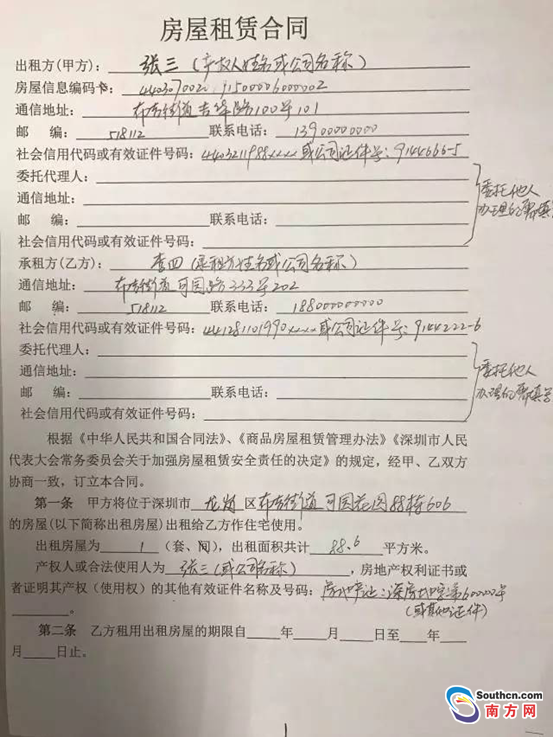 房屋租赁合同
出租方(甲方): 张三(产权人姓名或公司名称)
房屋信息编码卡: 440307002 1500006000002
通信地址: 布吉街道吉华路100号101
邮 编: 518112 联系电话: 13900000000
社会信用代码或有效证件号码: 4403211988xxxx或公司证件号: 9144666-5
委托代理人:
通信地址:
邮 编: 联系电话:
社会信用代码或有效证件号码:
委托他人
办理的需填写
承租方(乙方): 李四(承租方姓名或公司名称)
通信地址: 布吉街道可园路333号202
邮 编: 518112 联系电话: 18800000000
社会信用代码或有效证件号码: 441281101990xxxx或公司证件号: 9144222-6
委托代理人:
通信地址:
邮 编: 联系电话:
社会信用代码或有效证件号码:
委托他人
办理的需填写
根据《中华人民共和国合同法》、《商品房屋租赁管理办法》《深圳市人民
代表大会常务委员会关于加强房屋租赁安全责任的决定》的规定，经甲、乙双方
协商一致，订立本合同。
第一条 甲方将位于深圳市 龙岗 区 布吉街道可园花园88栋606
的房屋(以下简称出租房屋)出租给乙方作住宅使用。
出租房屋为 1 (套、间)，出租面积共计 88.6 平方米。
产权人或合法使用人为 张三(或公司名称)，房地产权利证书或
者证明其产权(使用权)的其他有效证件名称及号码: 房地产证: 深房地字第600000号
(或其他证件)
。
第二条 乙方租用出租房屋的期限自 年 月 日至 年
月 日止。
1
Southcn.com
南方网